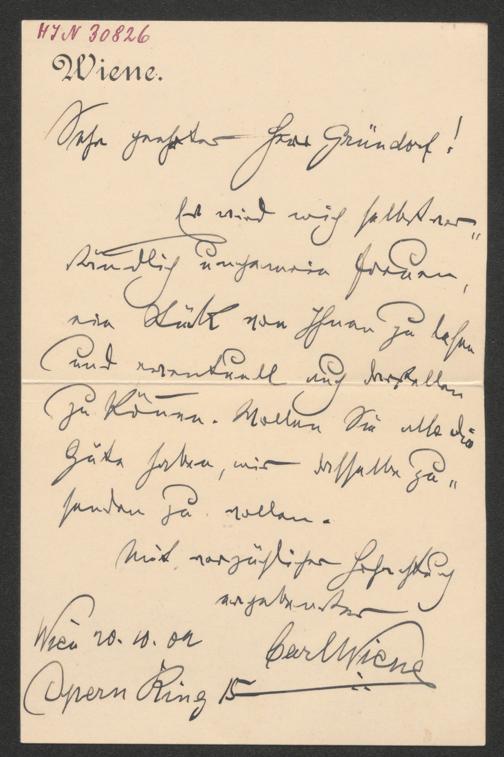 HIN 30826
Wiene.
Sehr geehrter Herr Gründorf!
Es wird mich selbstver„
ständlich ungemein freuen,
ein Stück von Ihnen zu lesen
und eventuell auch darstellen
zu können. Wollen Sie also die
Güte haben, mir dasselbe zu„
senden zu wollen.
Mit vorzüglicher Hochachtung
ergebenster
Carl Wiene
Wien 20. 10. 02
Opern Ring 15